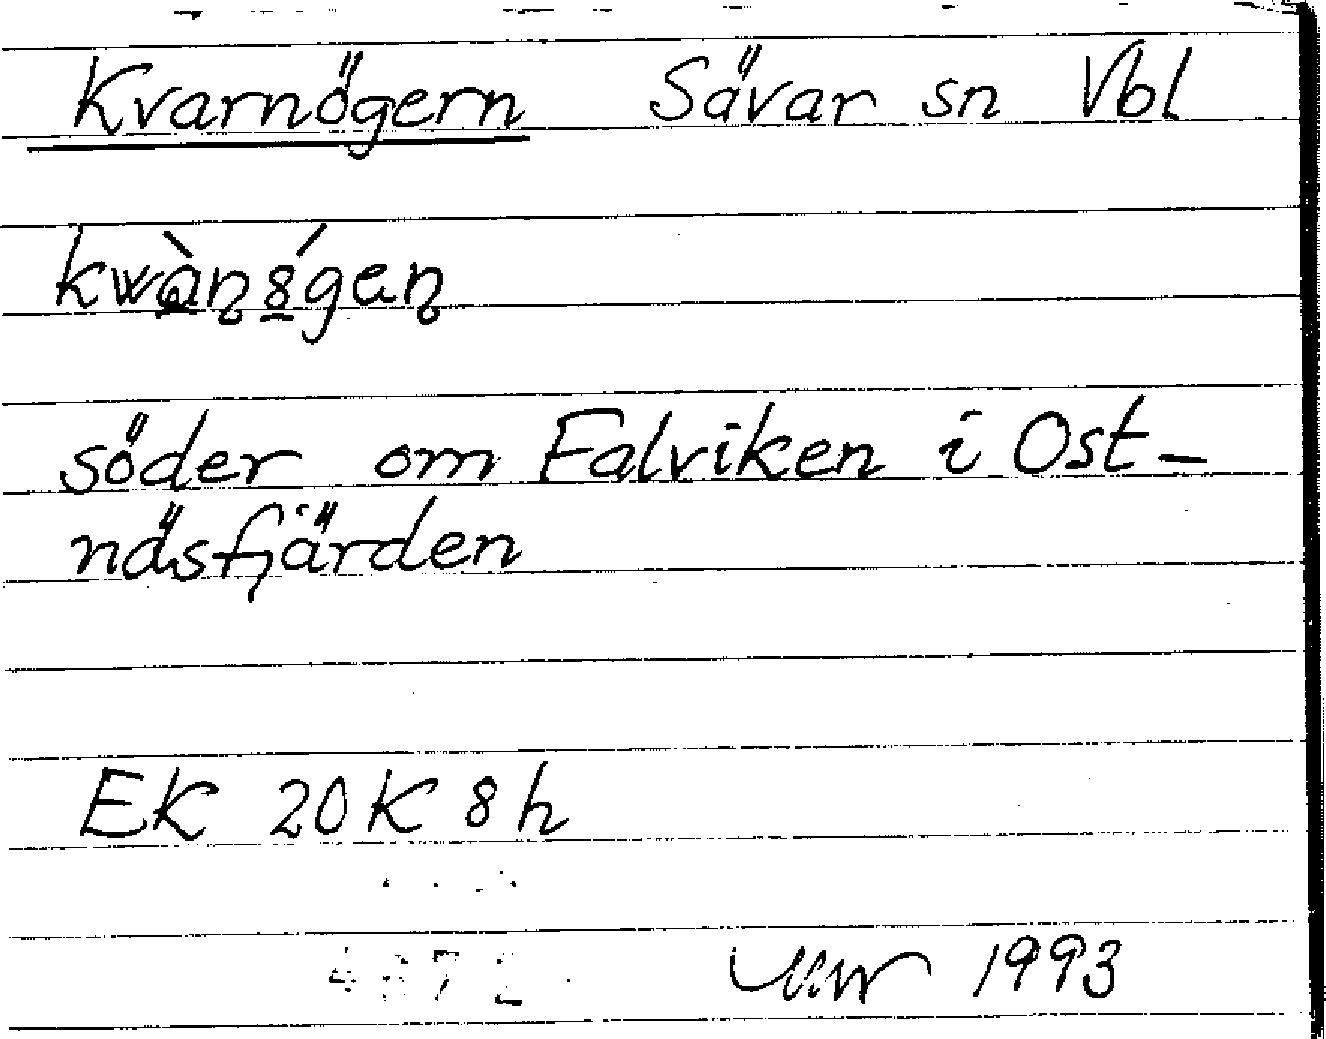 Kvarnögern Sävar sn Vbl
söder om Falviken i Ost-
näsfjärden
EK 20K 8h
1993